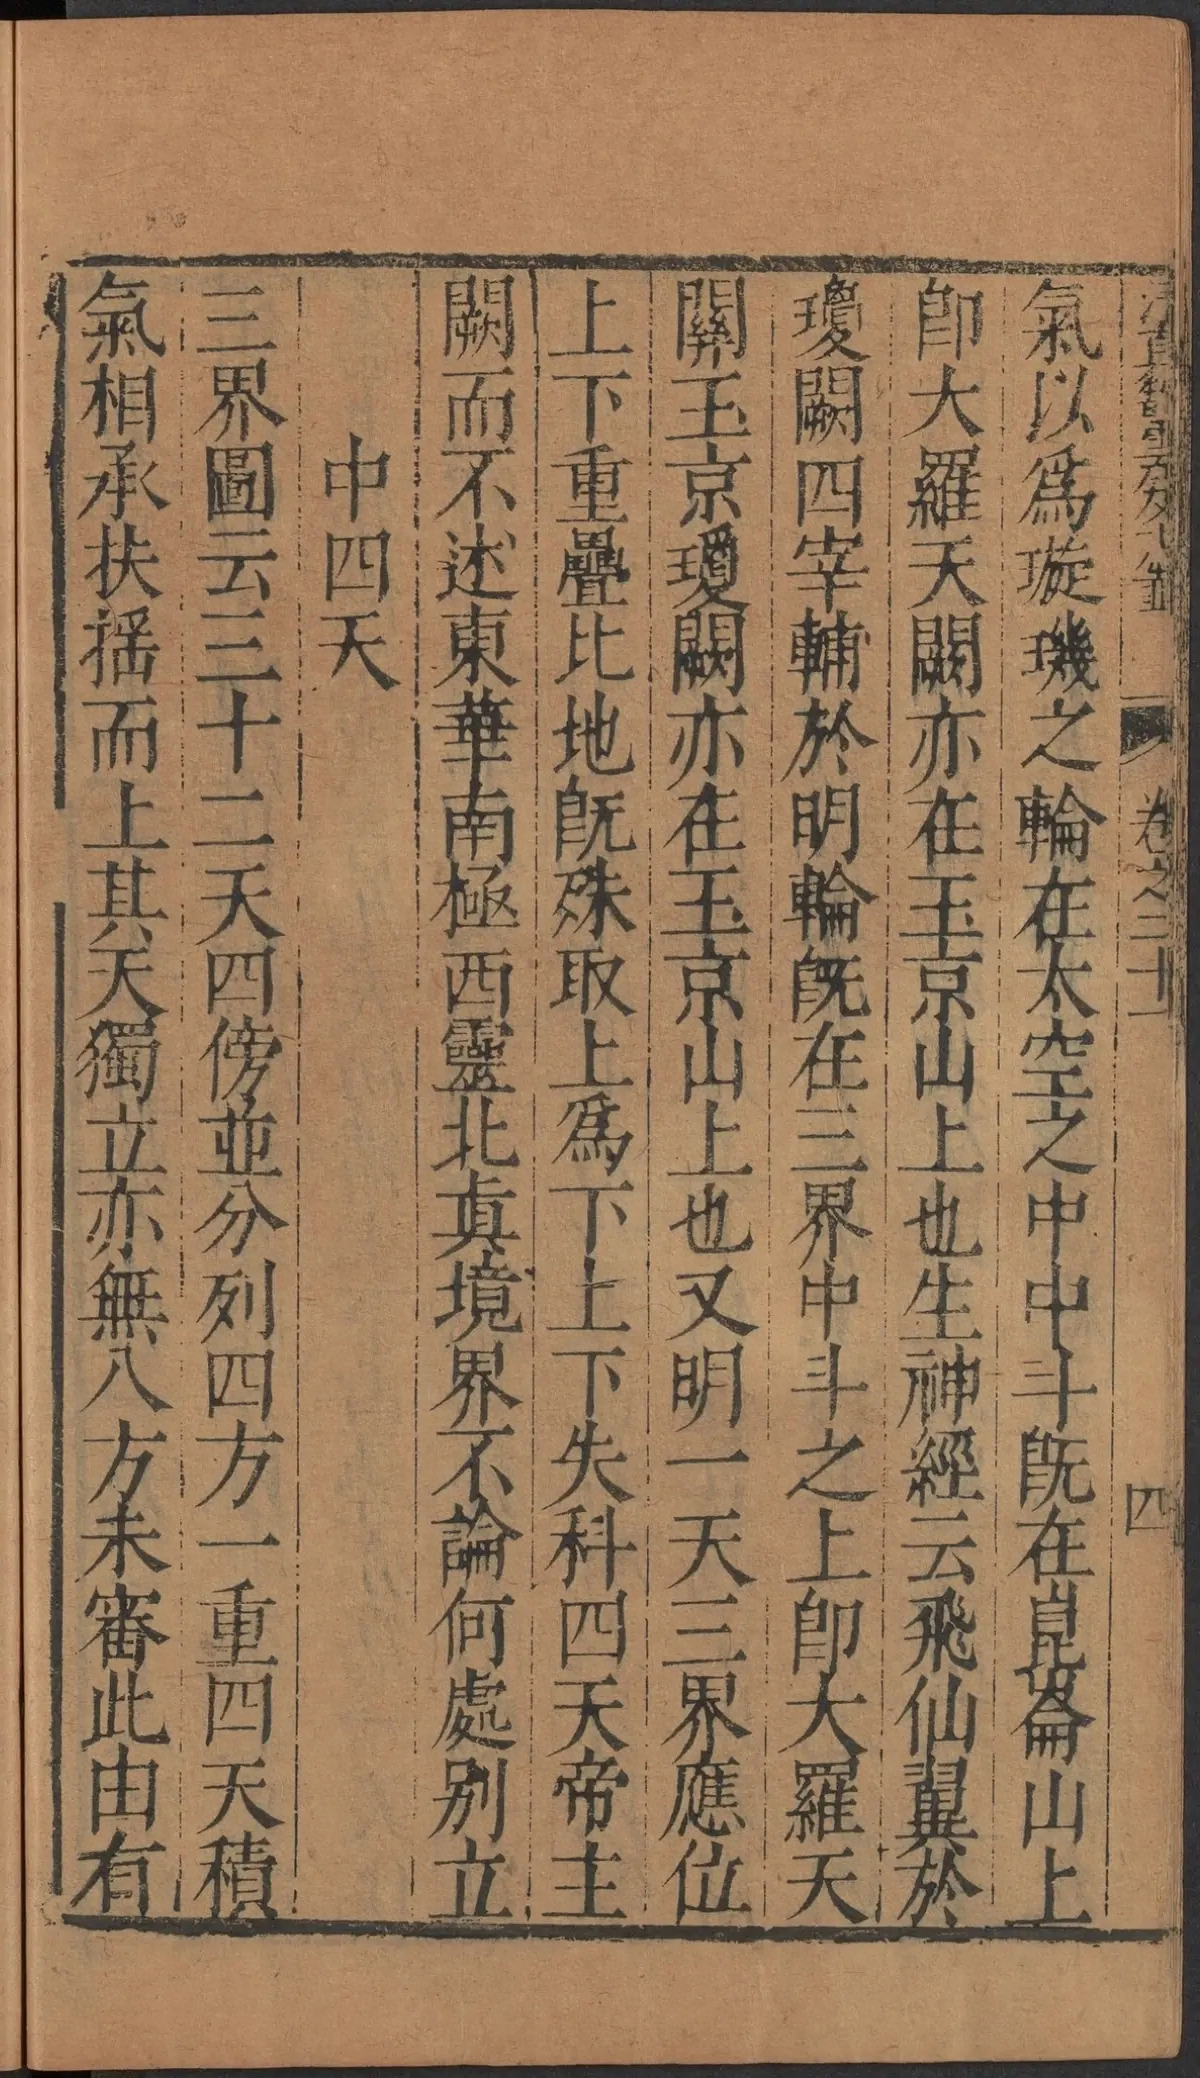 卷之二十一
四
氣以爲璇璣之輪在太空之中中斗既在崑崙山上
卽大羅天闕亦在玉京山上也生神經云飛仙翼於
瓊闕四宰輔於明輪既在三界中斗之上卽大羅天
關玉京瓊闕亦在玉京山上也又明一天三界應位
上下重疊比地既殊取上爲下上下失科四天帝主
闕而不述東華南極西靈北真境界不論何處別立
中四天
三界圖云三十二天四傍並分列四方一重四天積
氣相承扶揺而上其天獨立亦無八方未審此由有